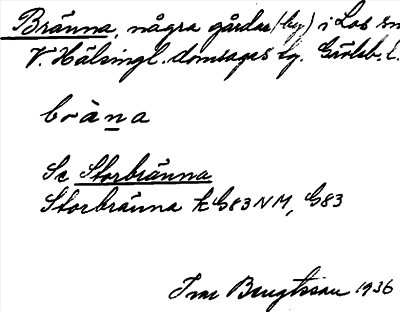 Bränna, några gårdar (by) i Los sn
V. Hälsingl. domsagas tg. Gävleb. l.
bràṉa
Se Storbränna
Storbränna k G83NM, G83
Ivar Bengtsson 1936